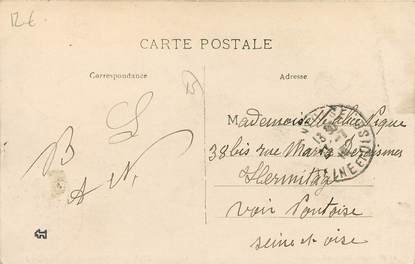 12 €
CARTE POSTALE
Correspondance
Adresse
Mademoiselle Pique
38 bis rue Maria Deraismes
l'Hermitage
voir Pontoise
Seine et oise
B L
A N
SEINE ET OISE